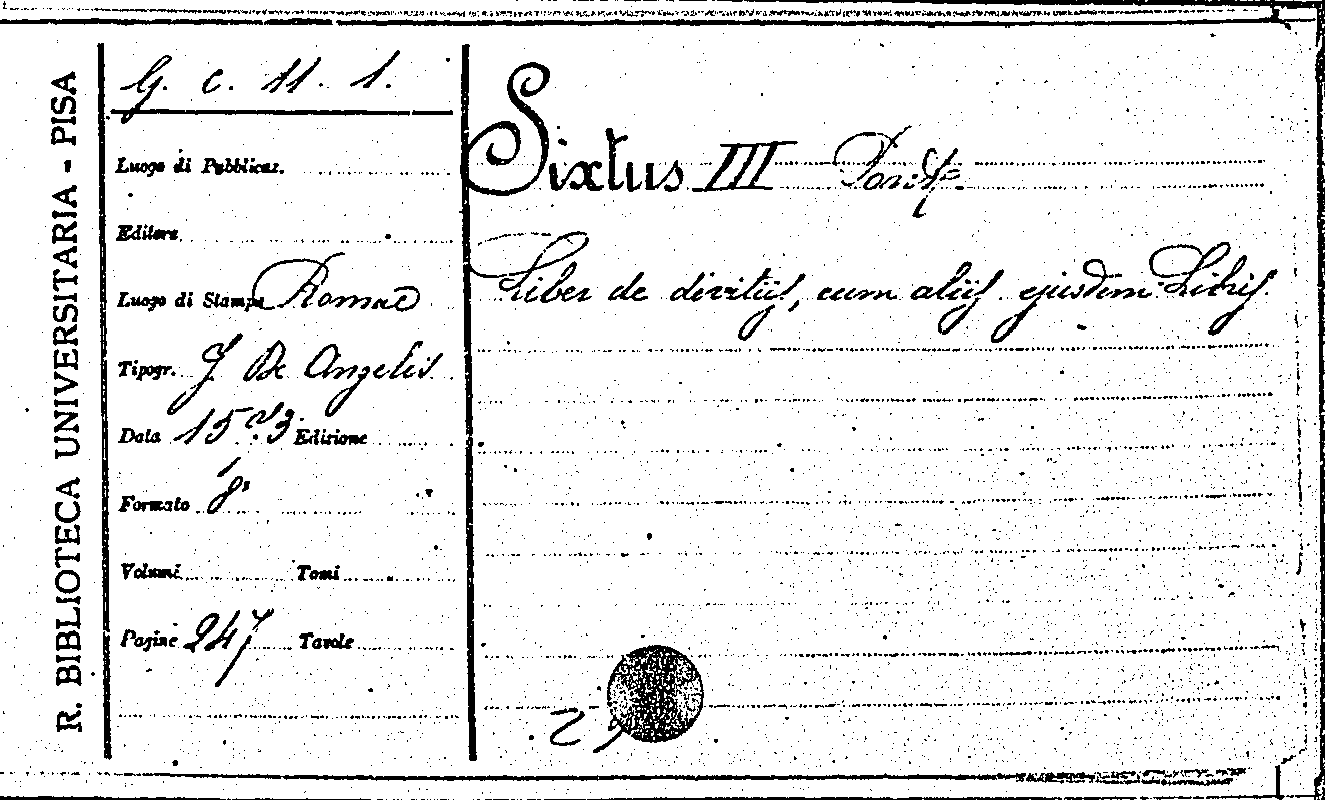 R. BIBLIOTECA UNIVERSITARIA - PISA
G. c. 11. 1.
Luogo di Pubblicaz.
Editore
Luogo di Stampa Romae
Tipogr. J De Angelis
Data 1573 Edizione
Formato 8°
Volumi Tomi
Pagine 247 Tavole
Sixtus III Pontf.
Liber de divitiis, cum aliis ejusdem Libris